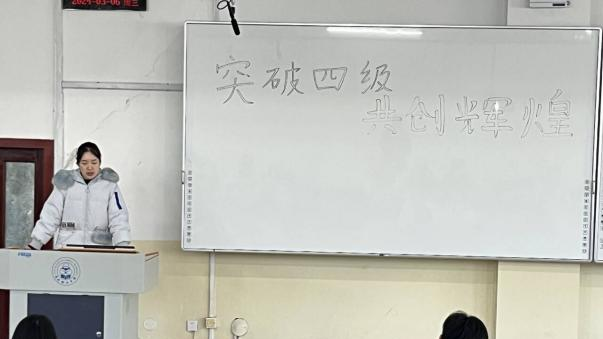 2024-03-06 周三
突破四级
共创辉煌